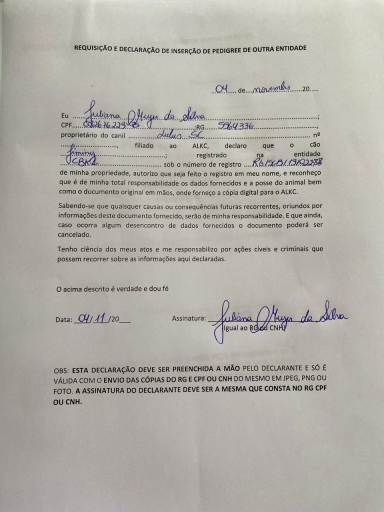 REQUISIÇÃO E DECLARAÇÃO DE INSERÇÃO DE PEDIGREE DE OUTRA ENTIDADE
04 de novembro 20....
Eu Juliana Meyer da Silva;
CPF RG 5964336,
proprietário do canil SC nº
, filiado ao ALKC, declaro que o cão
Jimmy; registrado na entidade
CBKC sob o número de registro
de minha propriedade, autorizo que seja feito o registro em meu nome, e reconheço
que é de minha total responsabilidade os dados fornecidos e a posse do animal bem
como o documento original em mãos, onde forneço a cópia digital para o ALKC.
Sabendo-se que quaisquer causas ou consequências futuras recorrentes, oriundos por
informações deste documento fornecido, serão de minha responsabilidade. E que ainda,
caso ocorra algum desencontro de dados fornecidos o documento poderá ser
cancelado.
Tenho ciência dos meus atos e me responsabilizo por ações cíveis e criminais que
possam recorrer as informações aqui declaradas.
O acima descrito é verdade e dou fé
Data: 04/11/20__ Assinatura: Juliana Meyer da Silva
Igual ao RG ou CNH
OBS: ESTA DECLARAÇÃO DEVE SER PREENCHIDA A MÃO PELO DECLARANTE E SÓ É
VÁLIDA COM O ENVIO DAS CÓPIAS DO RG E CPF OU CNH DO MESMO EM JPEG, PNG OU
FOTO. A ASSINATURA DO DECLARANTE DEVE SER A MESMA QUE CONSTA NO RG CPF
OU CNH.